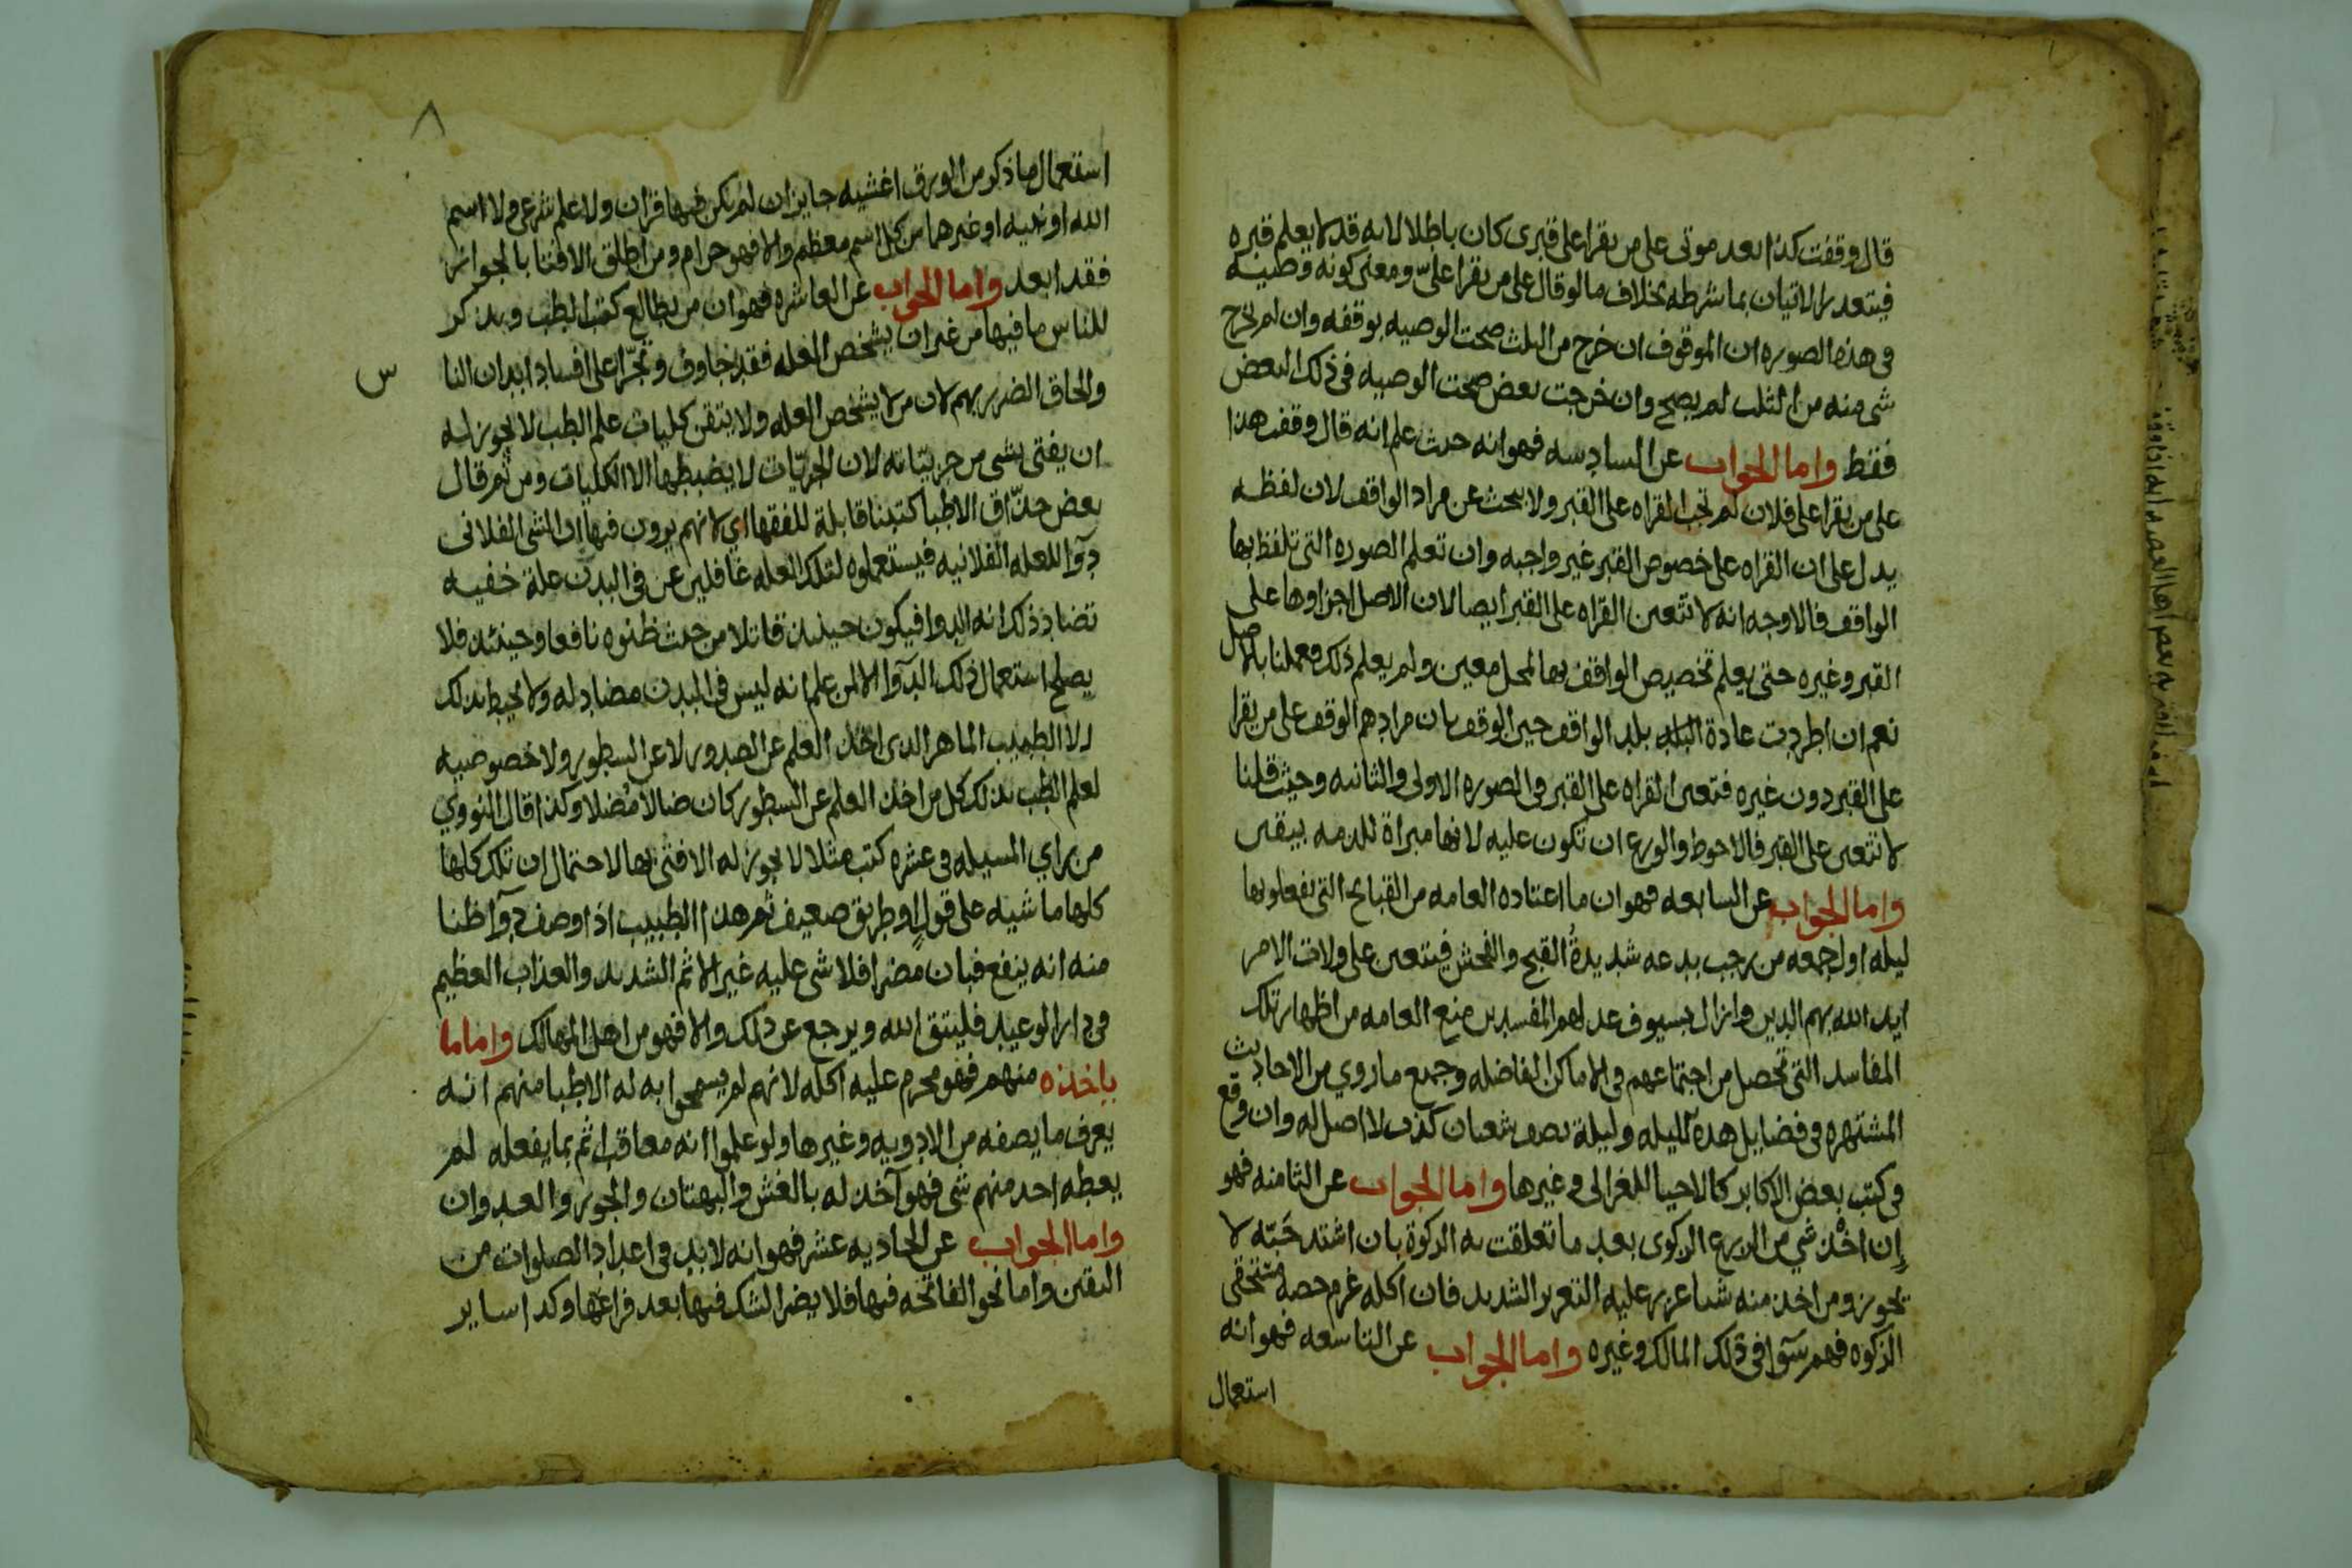 قال وقفت كذا بعد موتى على من يقرا على قبرى كان باطلا لانه قد لا يعلم قبره
فيتعذر الاتيان بما شرطه بخلاف ما لو قال على من يقرا على ومعنى كونه وصية
فى هذه الصوره ان الموقوف ان خرج من الثلث صحت الوصيه بوقفه وان لم يخرج
شى منه من الثلث لم يصح وان خرجت بعض صحت الوصيه فى ذلك البعض
فقط واما الجواب عن السادسه فهو انه حيث علم انه قال وقفت هذا
على من يقرا على فلان لم تجب القراه على القبر ولا بحث عن مراد الواقف لان لفظه
يدل على ان القراه على خصوص القبر غير واجبه وان تعلم الصوره التى تلفظ بها
الواقف فالاوجه انه لا تتعين القراه على القبر ايضا لان الاصل اجزاوها على
القبر وغيره حتى يعلم تخصيص الواقف بها لمحل معين ولم يعلم ذلك فعملنا بالاصل
نعم ان اطردت عادة بلد الواقف حين الوقف بان مرادهم الوقف على من يقرا
على القبر دون غيره فتعين القراه على القبر فى الصوره الاولى والثانيه وحيث قلنا
لا تتعين على القبر فالاحوط والورع ان تكون عليه لانها مبراة للذمه بيقين
واما الجواب عن السابعه فهو ان ما اعتاده العامه من القبايح التى يفعلوبها
ليله اول جمعه من رجب بدعه شديدة القبح والفحش فيتعين على ولات الامر
ايد الله بهم الدين وازال بسيوف عدلهم المفسدين منع العامه من اظهار تلك
المفاسد التى تحصل من اجتماعهم فى الاماكن الفاضله وجميع ما روي من الاحاديث
المشتهره فى فضايل هذه الليله وليلة نصف شعبان كذب لا اصل له وان وقع
فى كتب بعض الاكابر كالاحيا للغزالى وغيرها واما الجواب عن الثامنه فهو
إن اخذ شي من الزرع الزكوى بعد ما تعلقت به الزكوة بان اشتد حبّه لا
تجوز ومن اخذ منه شيا عزر عليه التعزير الشديد فان اكله غرم حصه مستحقى
الزكوه فهم سوآ فى ذلك المالك وغيره واما الجواب عن التاسعه فهو انه
استعمال
٨
استعمال ما ذكر من الورق اغشيه جايز ان لم يكن فيها قران ولا علم شرعى ولا اسم
الله او نبيه او غيرهما من كل اسم معظم والا فهو حرام ومن اطلق الافتا بالجواز
فقد ابعد واما الجواب عن العاشره فهو ان من يطالع كتب الطب ويذكر
للناس ما فيها من غير ان يشخص العله فقد جازف وتجرّا على افساد ابدان النا
س
والحاق الضرر بهم لان من لا يشخص العله ولا يتقن كليات علم الطب لا يجوز له
ان يفتى بشى من جزيياته لان الجزئيات لا يضبطها الا الكليات ومن ثم قال
بعض حذّاق الاطبا كتبنا قابلة للفقها اي لانهم يرون فيها ان الشى الفلانى
دوآ للعله الفلانيه فيستعملوه لتلك العله غافلين عن فى البدن علة خفيه
تضاد ذلك انه الدوا فيكون حينيذ قاتلا من حيث ظنوه نافعا وحينئذ فلا
يصلح استعمال ذلك الدوآ الا لمن علم انه ليس فى البدن مضاد له ولا يحيط بذلك
الا الطبيب الماهر الذى اخذ العلم عن الصدور لا عن السطور ولا خصوصيه
لعلم الطب بذلك كل من اخذ العلم عن السطور كان ضالا مضلا وكذا قال النووي
من راي المسيله فى عشره كتب مثلا لا يجوز له الافتى بها لاحتمال ان تلك كلها
كلها ماشيه على قول او طريق ضعيف ثم هذا الطبيب اذا وصف دوآ ظنا
منه انه ينفع فبان مضرا فلا شى عليه غير الاثم الشديد والعذاب العظيم
فى دار الوعيد فليتق الله ويرجع عن ذلك والا فهو من اهل المهالك واما ما
ياخذه منهم فهو محرم عليه اكله لانهم لم يسمحوا به له الا طبا منهم انه
يعرف ما يصفه من الادويه وغيرها ولو علموا انه معاقب اثم بما يفعله لم
يعطه احد منهم شى فهو آخذ له بالغش والبهتان والجور والعدوان
واما الجواب عن الحاديه عشر فهو انه لا بد فى اعداد الصلوات من
اليقين واما نحو الفاتحه فيها فلا يضر الشك فيها بعد فراغها وكذا ساير